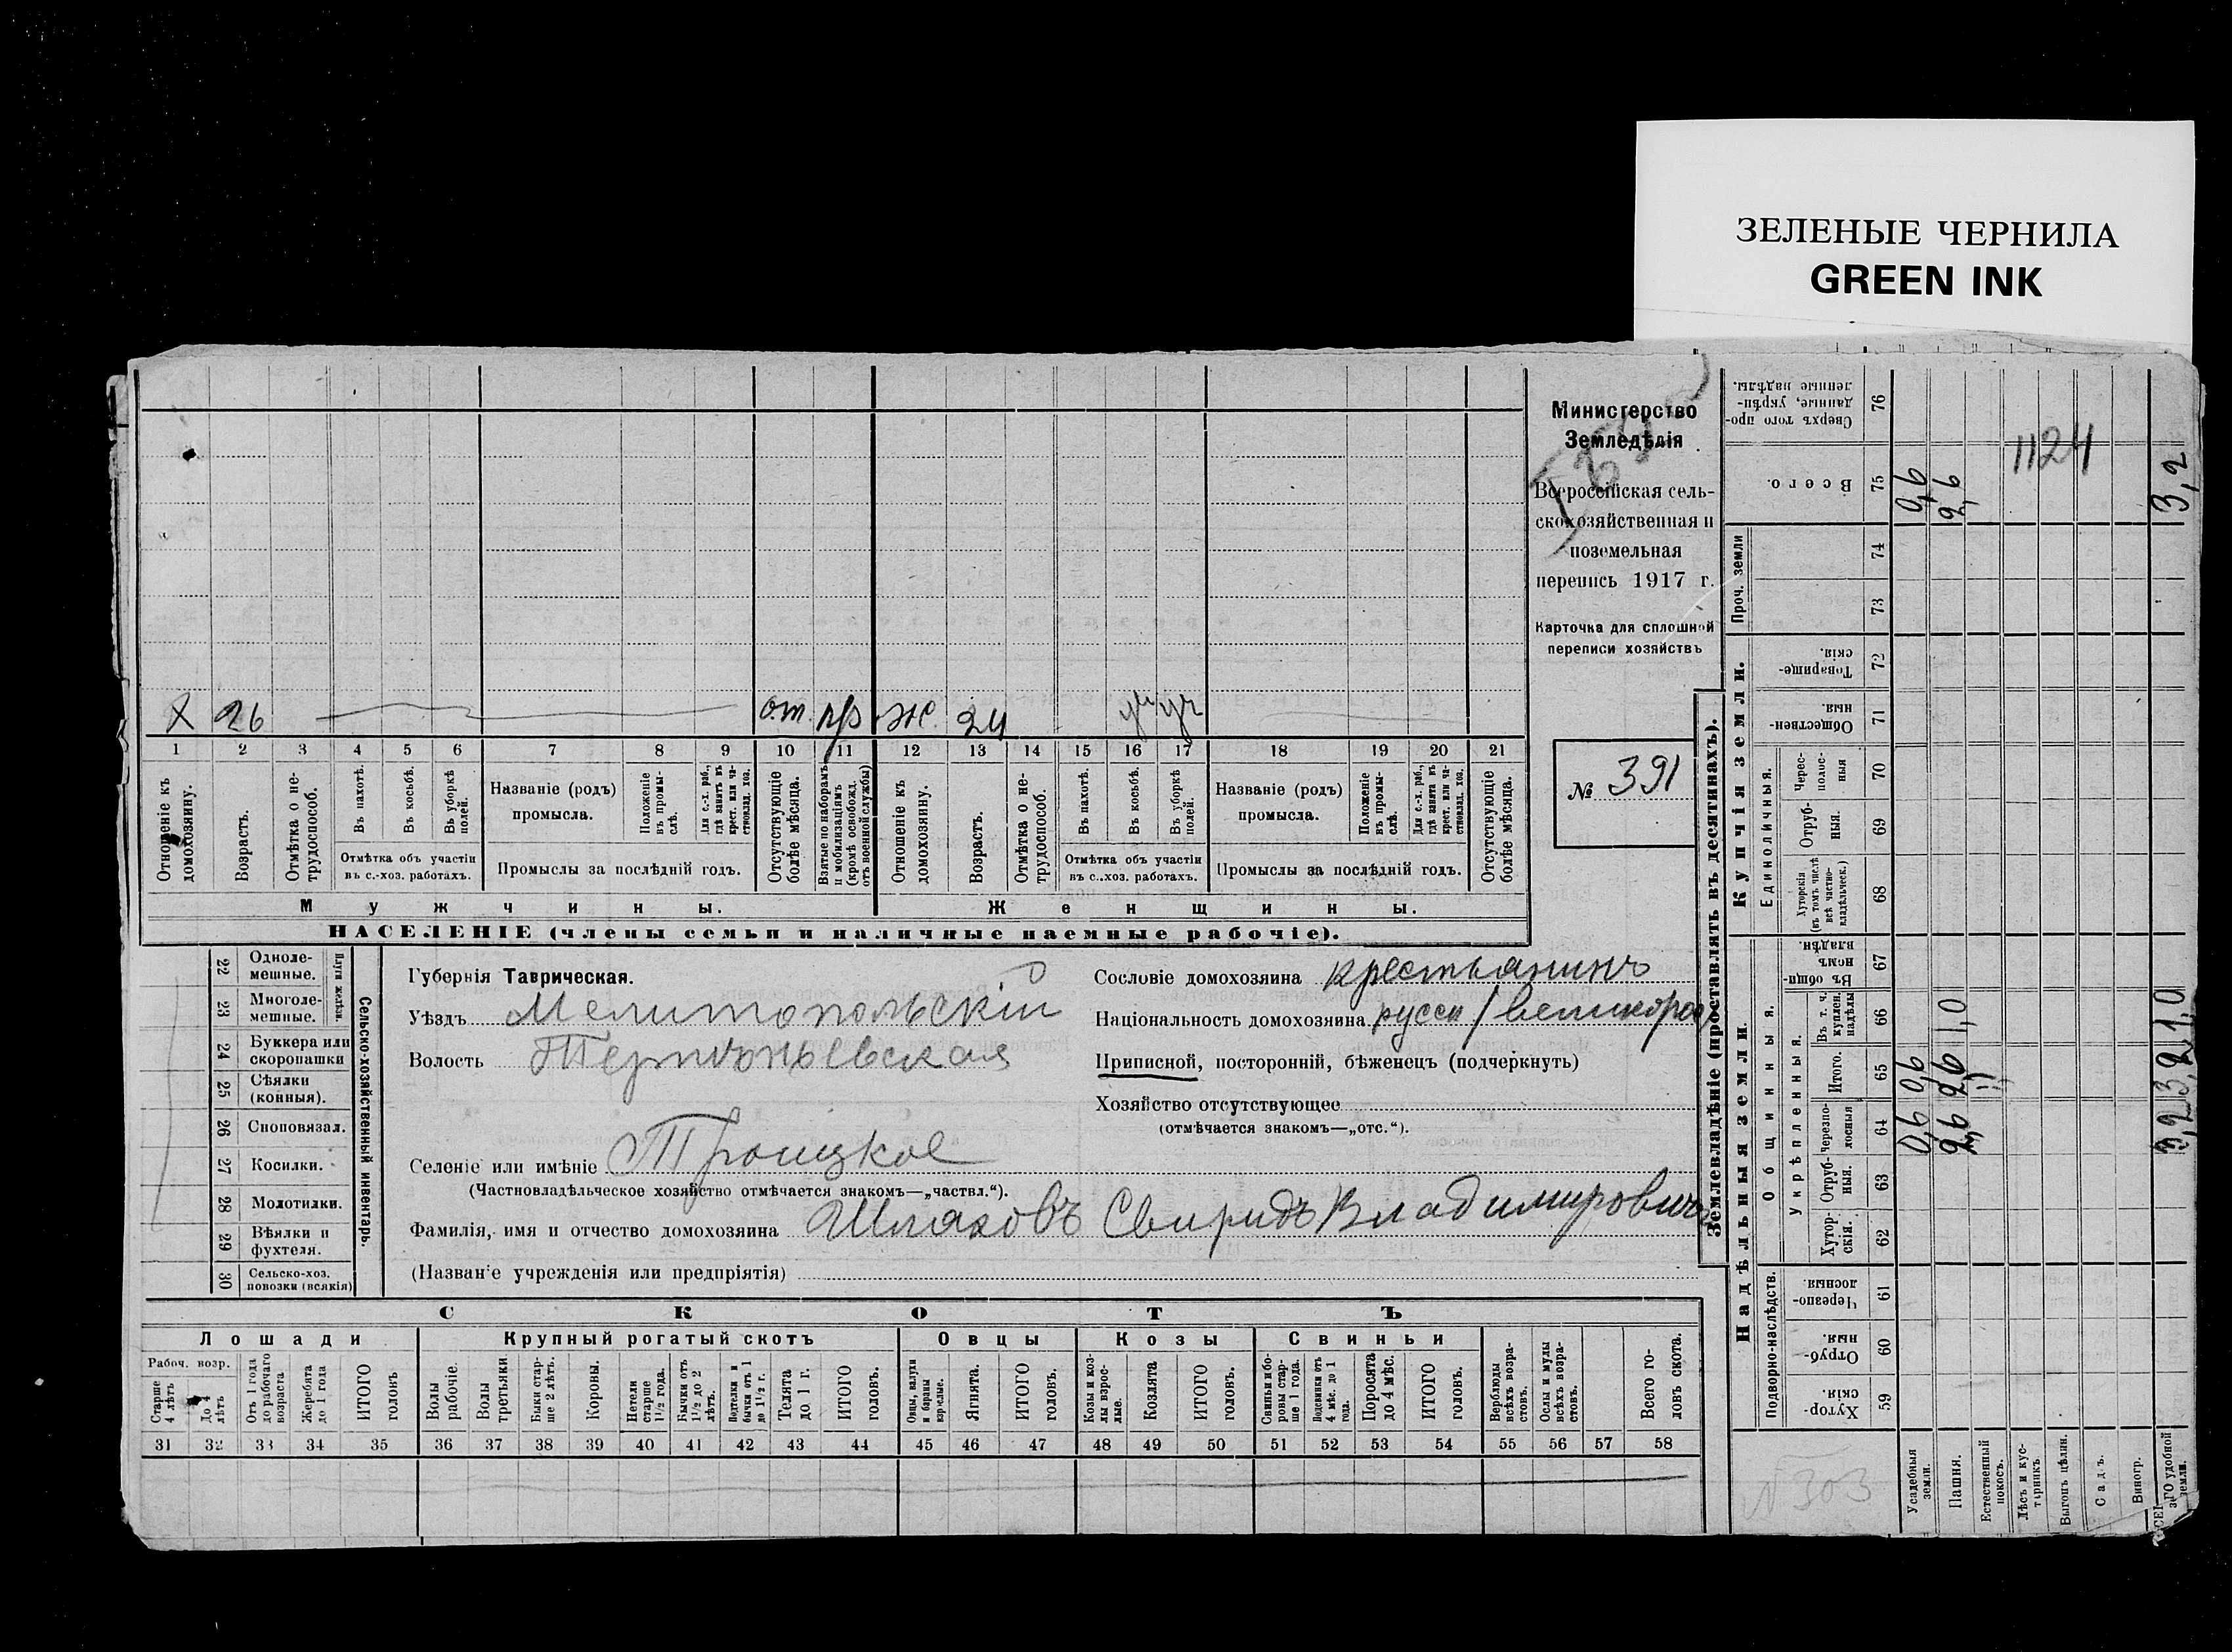 ЗЕЛЕНЫЕ ЧЕРНИЛА
GREEN INK
Министерство
Земледѣлія
Всероссійская сель-
скохозяйственная и
поземельная
перепись 1917 г.
Карточка для сплошной
переписи хозяйствъ
№ 391
Х 26 от. пр ж. 24
1 2 3 4 5 6 7 8 9 10 11 12 13 14 15 16 17 18 19 20 21
Отношеніе къ домохозяину.
Возрастъ.
Отмѣтка о не-трудоспособ.
Въ пахотѣ.
Въ косьбѣ.
Въ уборкѣ полей.
Отмѣтка объ участіи
въ с.-хоз. работахъ.
Названіе (родъ)
промысла.
Положеніе въ промы-слѣ.
Для с.-х. раб., гдѣ занятъ въ крест. или ча-стновлад. хоз.
Промыслы за послѣдній годъ.
Отсутствующіе болѣе мѣсяца.
Взятые по наборамъ и мобилизаціямъ (кромѣ освобожд. отъ военной службы)
Отношеніе къ домохозяину.
Возрастъ.
Отмѣтка о не-трудоспособ.
Въ пахотѣ.
Въ косьбѣ.
Въ уборкѣ полей.
Отмѣтка объ участіи
въ с..хоз. работахъ.
Названіе (родъ)
промысла.
Положеніе въ промы-слѣ.
Для с.-х. раб., гдѣ занята въ крест. или ча-стновлад. хоз.
Промыслы за послѣдній годъ.
Отсутствующіе болѣе мѣсяца.
Мужчины.
Женщины.
НАСЕЛЕНІЕ (члены семьи и наличные наемные рабочіе).
Сельско-хозяйственный инвентарь.
Плуги желѣзн.
22 Одноле-мешные.
23 Многоле-мешные.
24 Буккера или скоропашки
25 Сѣялки (конныя).
26 Сноповязал.
27 Косилки.
28 Молотилки.
29 Вѣялки и фухтеля.
30 Сельско-хоз. повозки (всякія)
Губернія Таврическая.
Уѣздъ Мелитопольскій
Волость Терпѣньевская
Селеніе или имѣніе Троицкое
(Частновладѣльческое хозяйство отмѣчается знакомъ—„частвл.“).
Фамилія, имя и отчество домохозяина Шляховъ Свиридъ Владимировичъ
(Названіе учрежденія или предпріятія)
Сословіе домохозяина крестьянинъ
Національность домохозяина русск / великоросс
Приписной, посторонній, бѣженецъ (подчеркнуть)
Хозяйство отсутствующее
(отмѣчается знакомъ—„отс.“).
СКОТЪ
Лошади
Крупный рогатый скотъ
Овцы
Козы
Свиньи
Рабоч. возр.
Старше 4 лѣтъ
До 4 лѣтъ
Отъ 1 года до рабочаго возраста
Жеребята до 1 года
ИТОГО головъ
Волы рабочіе.
Волы третьяки.
Быки стар-ше 2 лѣтъ.
Коровы.
Нетели старше 1½ года.
Бычки отъ 1½ до 2 лѣтъ.
Подтелки и бычки отъ 1 до 1½ г.
Телята до 1 г.
ИТОГО головъ.
Овцы, валухи и бараны взрослые.
Ягнята.
ИТОГО головъ.
Козы и коз-лы взрос-лые.
Козлята
ИТОГО головъ.
Свиньи и бо-ровы стар-ше 1 года.
Подсвинки отъ 4 мѣс. до 1 года.
Поросята до 4 мѣс.
ИТОГО головъ.
Верблюды всѣхъ возра-стовъ.
Ослы и мулы всѣхъ возра-стовъ.
Всего го-ловъ скота.
31 32 33 34 35 36 37 38 39 40 41 42 43 44 45 46 47 48 49 50 51 52 53 54 55 56 57 58
Землевладѣніе (проставлять въ десятинахъ).
Надѣльныя земли.
Купчія земли.
Проч. земли
Подворно-наслѣдств.
Общинныя.
Укрѣпленныя.
Единоличныя.
59 Хутор-скія.
60 Отруб-ныя.
61 Черезпо-лосныя
62 Хутор-скія.
63 Отруб-ныя.
64 Черезпо-лосныя
65 Итого.
66 Въ т. ч. куплен. надѣлы
67 Въ общи-номъ владѣн.
68 Хуторскія (въ томъ числѣ всѣ частно-владѣльческ.)
69 Отруб-ныя.
70 Черес-полос-ныя
71 Обществен-ныя.
72 Товарище-скія.
73
74
75 Всего.
76 Сверхъ того про-данные, укрѣп-ленные надѣлы.
Усадебныя земли. 0,6 0,6 0,6
Пашня. 2,6 2,6 1,0 2,6
Естественный покосъ.
Лѣсъ и кус-тарникъ.
Выгонъ цѣлин.
Садъ.
Виногр.
ВСЕГО удобной земли. 3,2 3,2 1,0 3,2
1124
N 303